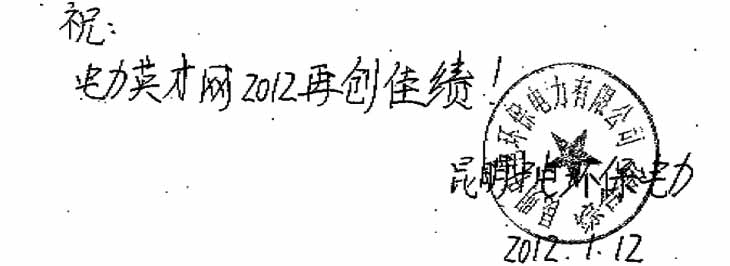 祝：
电力英才网2012再创佳绩！
环保电力有限公司
昆明中电环保电力
2012.1.12